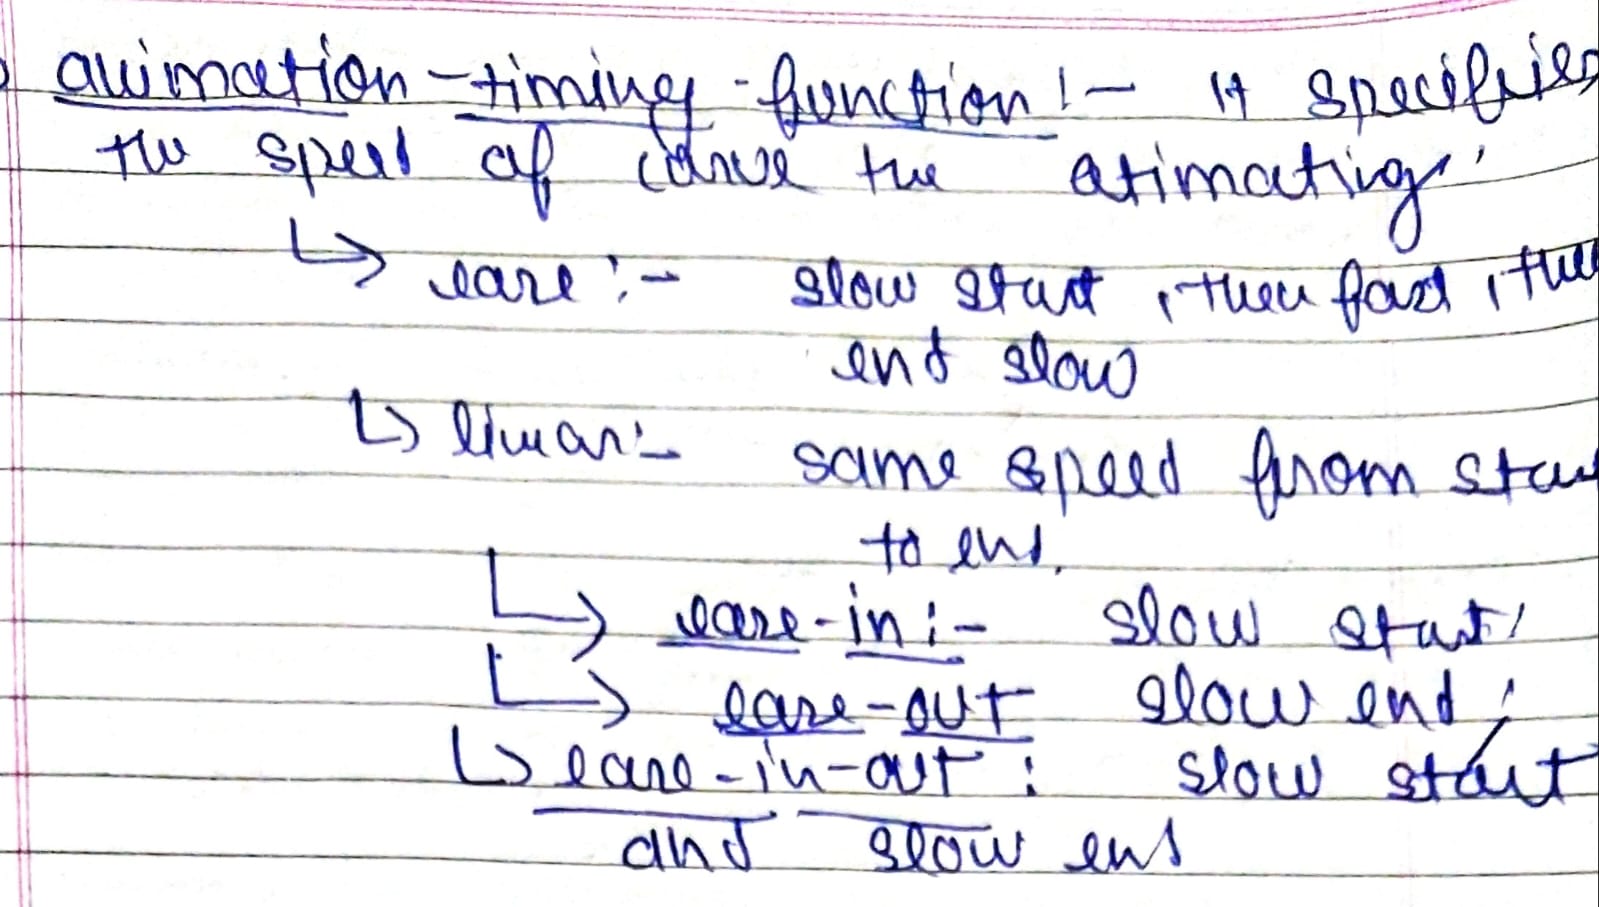 animation-timing-function :- It specifies
the speed of curve the animating.
↳ ease :- slow start, then fast, then
end slow
↳ linear :- same speed from start
to end.
↳ ease-in :- slow start
↳ ease-out slow end
↳ ease-in-out : slow start
and slow end